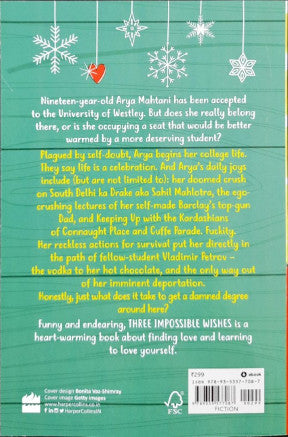 Nineteen-year-old Arya Mahtani has been accepted
to the University of Westley. But does she really belong
there, or is she occupying a seat that would be better
warmed by a more deserving student?
Plagued by self-doubt, Arya begins her college life.
They say life is a celebration. And Arya's daily joys
include (but are not limited to): her doomed crush
on South Delhi ka Drake aka Sahil Malhotra, the ego-
crushing lectures of her self-made Barclay's top-gun
Dad, and Keeping Up with the Kardashians
of Connaught Place and Cuffe Parade. Fuckity.
Her reckless actions for survival put her directly in
the path of fellow-student Vladimir Petrov –
the vodka to her hot chocolate, and the only way out
of her imminent deportation.
Honestly, just what does it take to get a damned degree
around here?
Funny and endearing, THREE IMPOSSIBLE WISHES is a
heart-warming book about finding love and learning
to love yourself.
₹299
ebook
ISBN 978-93-5357-708-7
FICTION
Cover design Bonita Vaz-Shimray
Cover image Getty Images
www.harpercollins.co.in
HarperCollinsIN
FSC